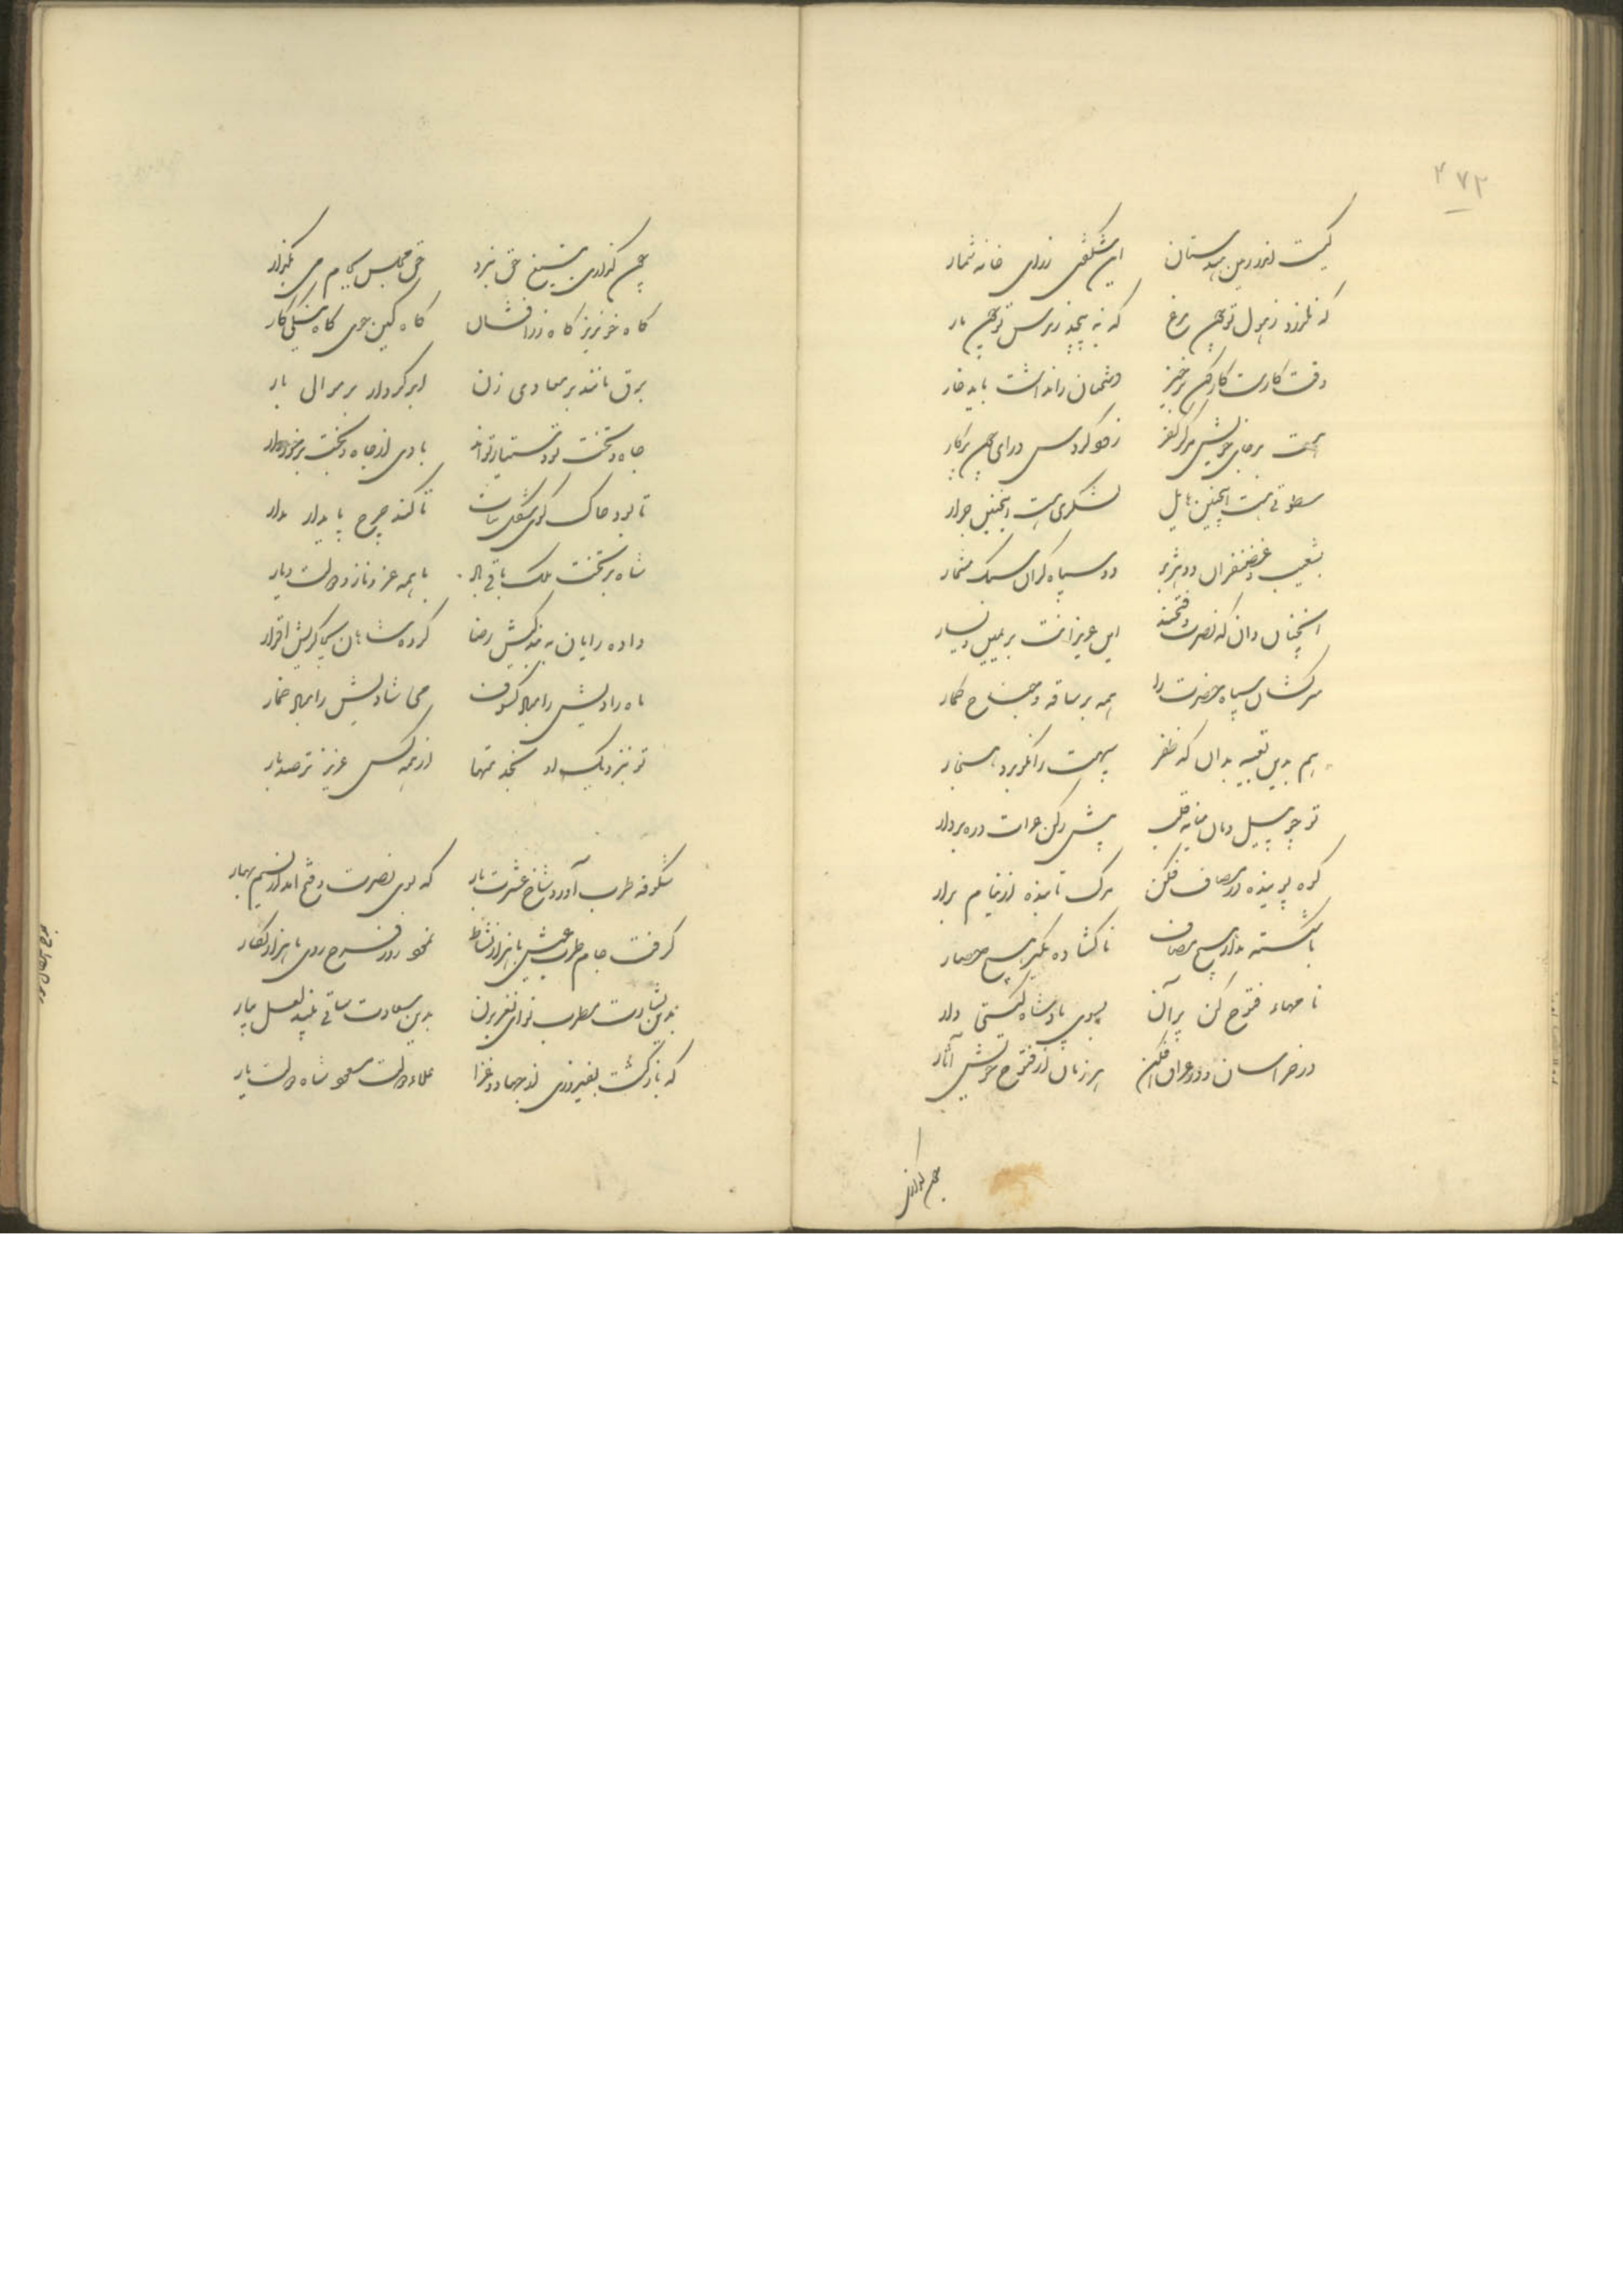 ۴۷۲
کیست اندر زمین هندستان این شگفتی زرای خانه شمار
که نلرزد ز هول تو چون مرغ که نه پیچد ز ترس تو چون مار
وقت کارست کار کن برخیز دشمنان را نداشت باید خار
هست بر جای خویش مرکز کفر زو کرد س درای چون پرکار
سطوتی هست اینچنین هایل لشکری هست اینچنین جرار
بشعیب و غضنفران دو هژبر دو سپاه گران سبک مشمار
آنچنان دان که نصرت و فتحند این عزیزانت بر یمین و یسار
سرکشان سپاه حضرت را همه بر ساقه و جناح گمار
هم بدین تعبیه بدان که ظفر سپهت را نکو برد هنجار
تو چو پیل دمان میانه قلب پیش رکن عرات ده بردار
کوه پوینده در مصاف فکن مرگ تابنده از نیام برار
ناشکسته مدار هیچ مصاف ناگشاده مگیر هیچ حصار
نامهاء فتوح کن پران بسوی پادشاه گیتی دار
در خراسان و در عراق افکن هر زمان از فتوح خویش آثار
چون گزاردی
چون گزاردی بتیغ حق نبرد حق مجلس بجام می بگذار
گاه خونریز گاه زر افشان گاه کین جوی گاه نیکی کار
برق مانند بر معادی زن ابر کردار بر موالی بار
جاه و بخت تو دستیار تواند بادی از جاه و بخت برخوردار
تا بود خاک گوی شکل ثبات تا کند چرخ پایدار مدار
شاه بر تخت ملک باقی باد با همه عز و ناز و دولت و یار
داده رایان به بندگیش رضا کرده شاهان بچاکریش اقرار
ماه رادیش را مباد کسوف می شادیش را مباد خمار
تو بنزدیک او بخدمتها از همه کس عزیز تر صد بار
شکوفه طرب آورد شاخ عشرت بار که بوی نصرت و فتح آمد از نسیم بهار
گرفت جام طرب عیش با هزار نشاط نمود روز فرح روی با هزار نگار
بدین بشارت مطرب نوای نغز بزن بدین سعادت ساقی نبید لعل بیار
که بازگشت بفیروزی از جهاد و غزا علاء دولت مسعود شاه دولت یار